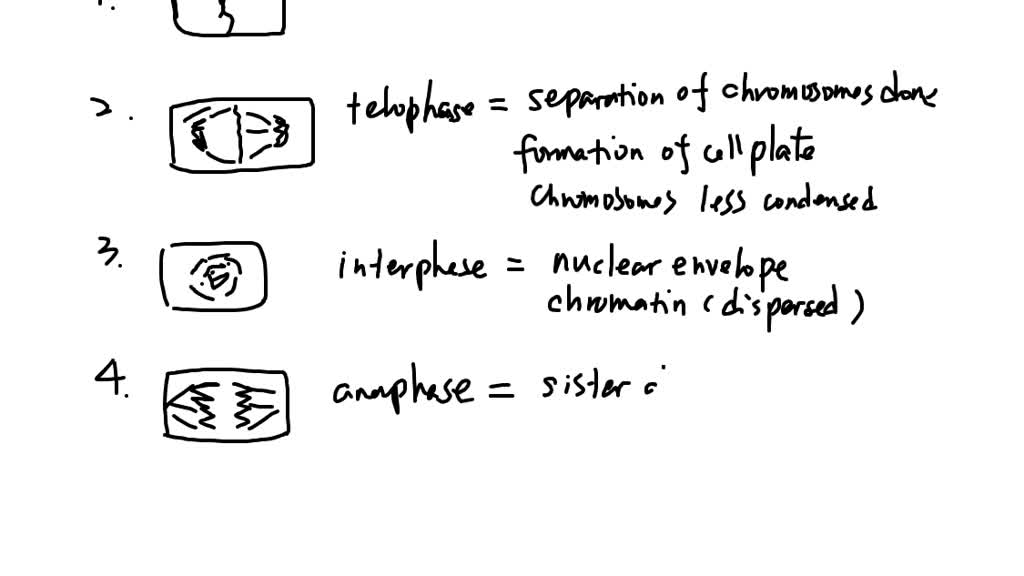 1.
2. telophase = separation of chromosomes done
formation of cell plate
chromosomes less condensed
3. interphase = nuclear envelope
chromatin (dispersed)
4. anaphase = sister